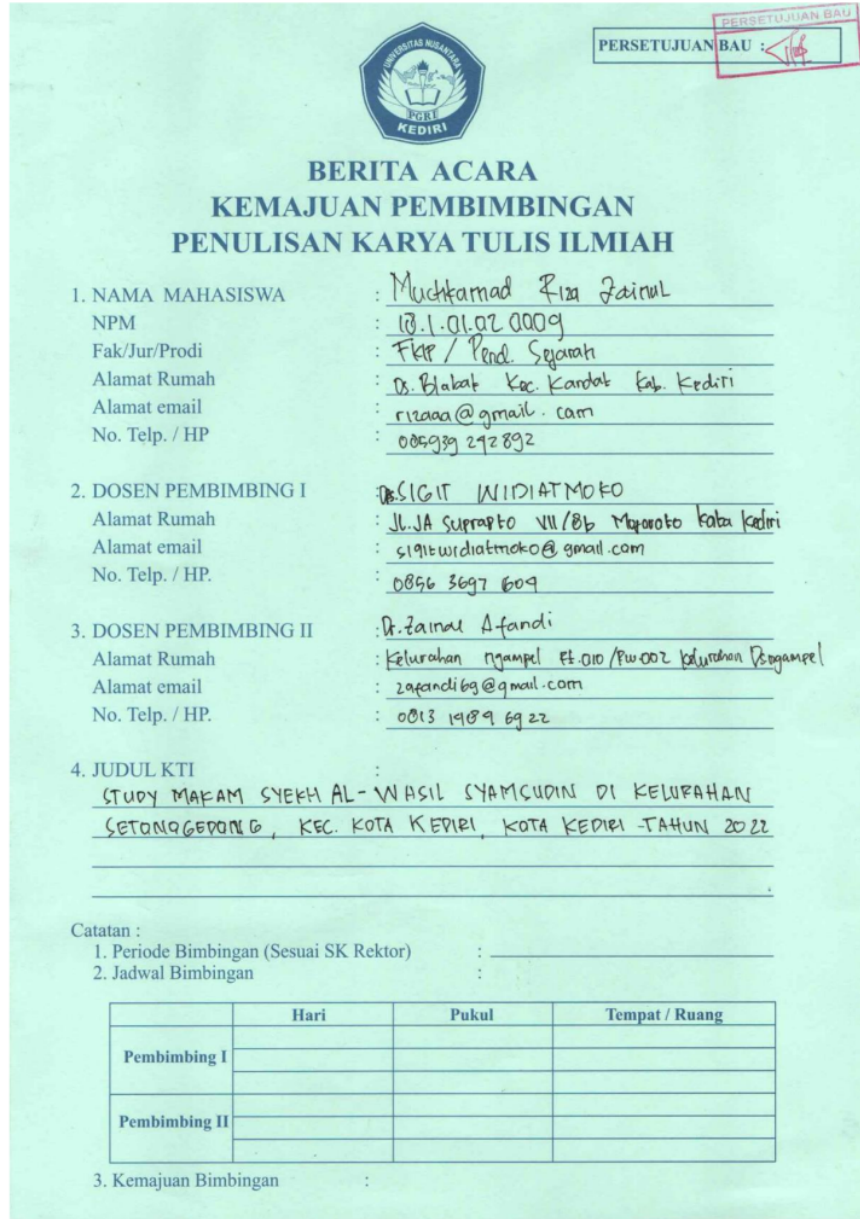 PERSETUJUAN BAU
PERSETUJUAN BAU :
UNIVERSITAS NUSANTARA
PGRI
KEDIRI
BERITA ACARA
KEMAJUAN PEMBIMBINGAN
PENULISAN KARYA TULIS ILMIAH
1. NAMA MAHASISWA : Muchkamad Riza Zainul
NPM : 18.1.01.02.0009
Fak/Jur/Prodi : FKIP / Pend. Sejarah
Alamat Rumah : Ds. Blabak Kec. Kandat Kab. Kediri
Alamat email : rizaaa@gmail.com
No. Telp. / HP : 085939 292892
2. DOSEN PEMBIMBING I : Drs. SIGIT WIDIATMOKO
Alamat Rumah : JL. JA Suprapto VII/8b Mojoroto kota kediri
Alamat email : sigitwidiatmoko@gmail.com
No. Telp. / HP. : 0856 3697 609
3. DOSEN PEMBIMBING II : Dr. Zainal Afandi
Alamat Rumah : Kelurahan ngampel Rt.010 /Rw.002 kelurahan
Alamat email : zafandi69@gmail.com
No. Telp. / HP. : 0813 1989 6922
4. JUDUL KTI :
STUDY MAKAM SYEKH AL-WASIL SYAMSUDIN DI KELURAHAN
SETONOGEDONG, KEC. KOTA KEDIRI, KOTA KEDIRI -TAHUN 2022
Catatan :
1. Periode Bimbingan (Sesuai SK Rektor) :
2. Jadwal Bimbingan :
Hari Pukul Tempat / Ruang
Pembimbing I
Pembimbing II
3. Kemajuan Bimbingan :